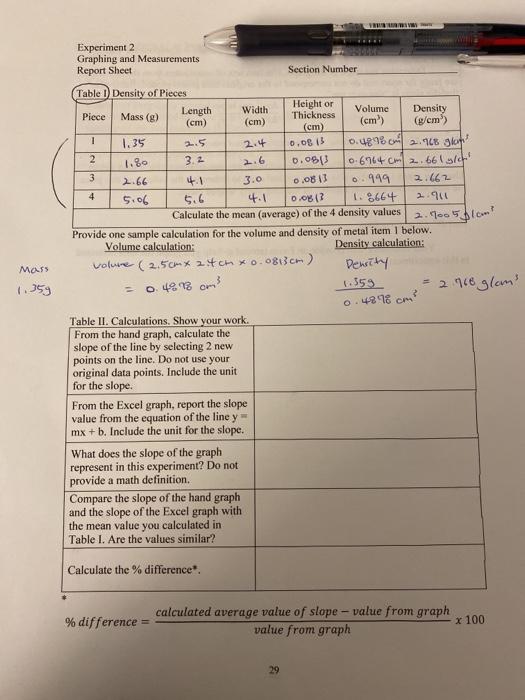 Experiment 2
Graphing and Measurements
Report Sheet Section Number
Table I) Density of Pieces
Piece Mass (g) Length (cm) Width (cm) Height or Thickness (cm) Volume (cm³) Density (g/cm³)
1 1.35 2.5 2.4 0.0813 0.4878 cm³ 2.768 g/cm³
2 1.80 3.2 2.6 0.0813 0.6764 cm³ 2.661 g/cm³
3 2.66 4.1 3.0 0.0813 0.999 2.662
4 5.06 5.6 4.1 0.0813 1.8664 2.711
Calculate the mean (average) of the 4 density values 2.7005 g/cm³
Provide one sample calculation for the volume and density of metal item 1 below.
Volume calculation: Density calculation:
Mass volume (2.5cm x 2.4cm x 0.0813cm) Density
1.35g = 0.4878 cm³ 1.35g = 2.768 g/cm³
0.4878 cm³
Table II. Calculations. Show your work.
From the hand graph, calculate the
slope of the line by selecting 2 new
points on the line. Do not use your
original data points. Include the unit
for the slope.
From the Excel graph, report the slope
value from the equation of the line y =
mx + b. Include the unit for the slope.
What does the slope of the graph
represent in this experiment? Do not
provide a math definition.
Compare the slope of the hand graph
and the slope of the Excel graph with
the mean value you calculated in
Table I. Are the values similar?
Calculate the % difference*.
*
% difference = calculated average value of slope − value from graph x 100
value from graph
29